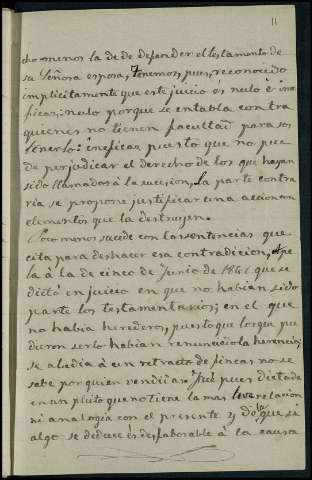 11
cho menos la de defender el testamento de
su Señora esposa, tenemos, pues, reconocido
implicitamente que este juicio es nulo é ine
ficaz; nulo porque se entabla contra
quienes no tienen facultad para sos
tenerlo: ineficaz puesto que no pue
de perjudicar el derecho de los que hayan
sido llamados á la sucesion. La parte contra
ria se propone justificar una accion con
elementos que la destruyen.
Poco menos sucede con las sentencias que
cita para deshacer esa contradicion, apela
á la de cinco de Junio de que se
dictó en juicio en que no habian sido
parte los testamentarios; en el que
no habia heredero, puesto que los que pu
dieron serlo habian renunciado la herencia;
se aludia á un retracto de fincas no se
sabe por quien vendidas. Fué pues dictada
en un pleito que no tiene la mas leve relacion
ni analogia con el presente y de la que si
algo se deduce es desfavorable á la causa